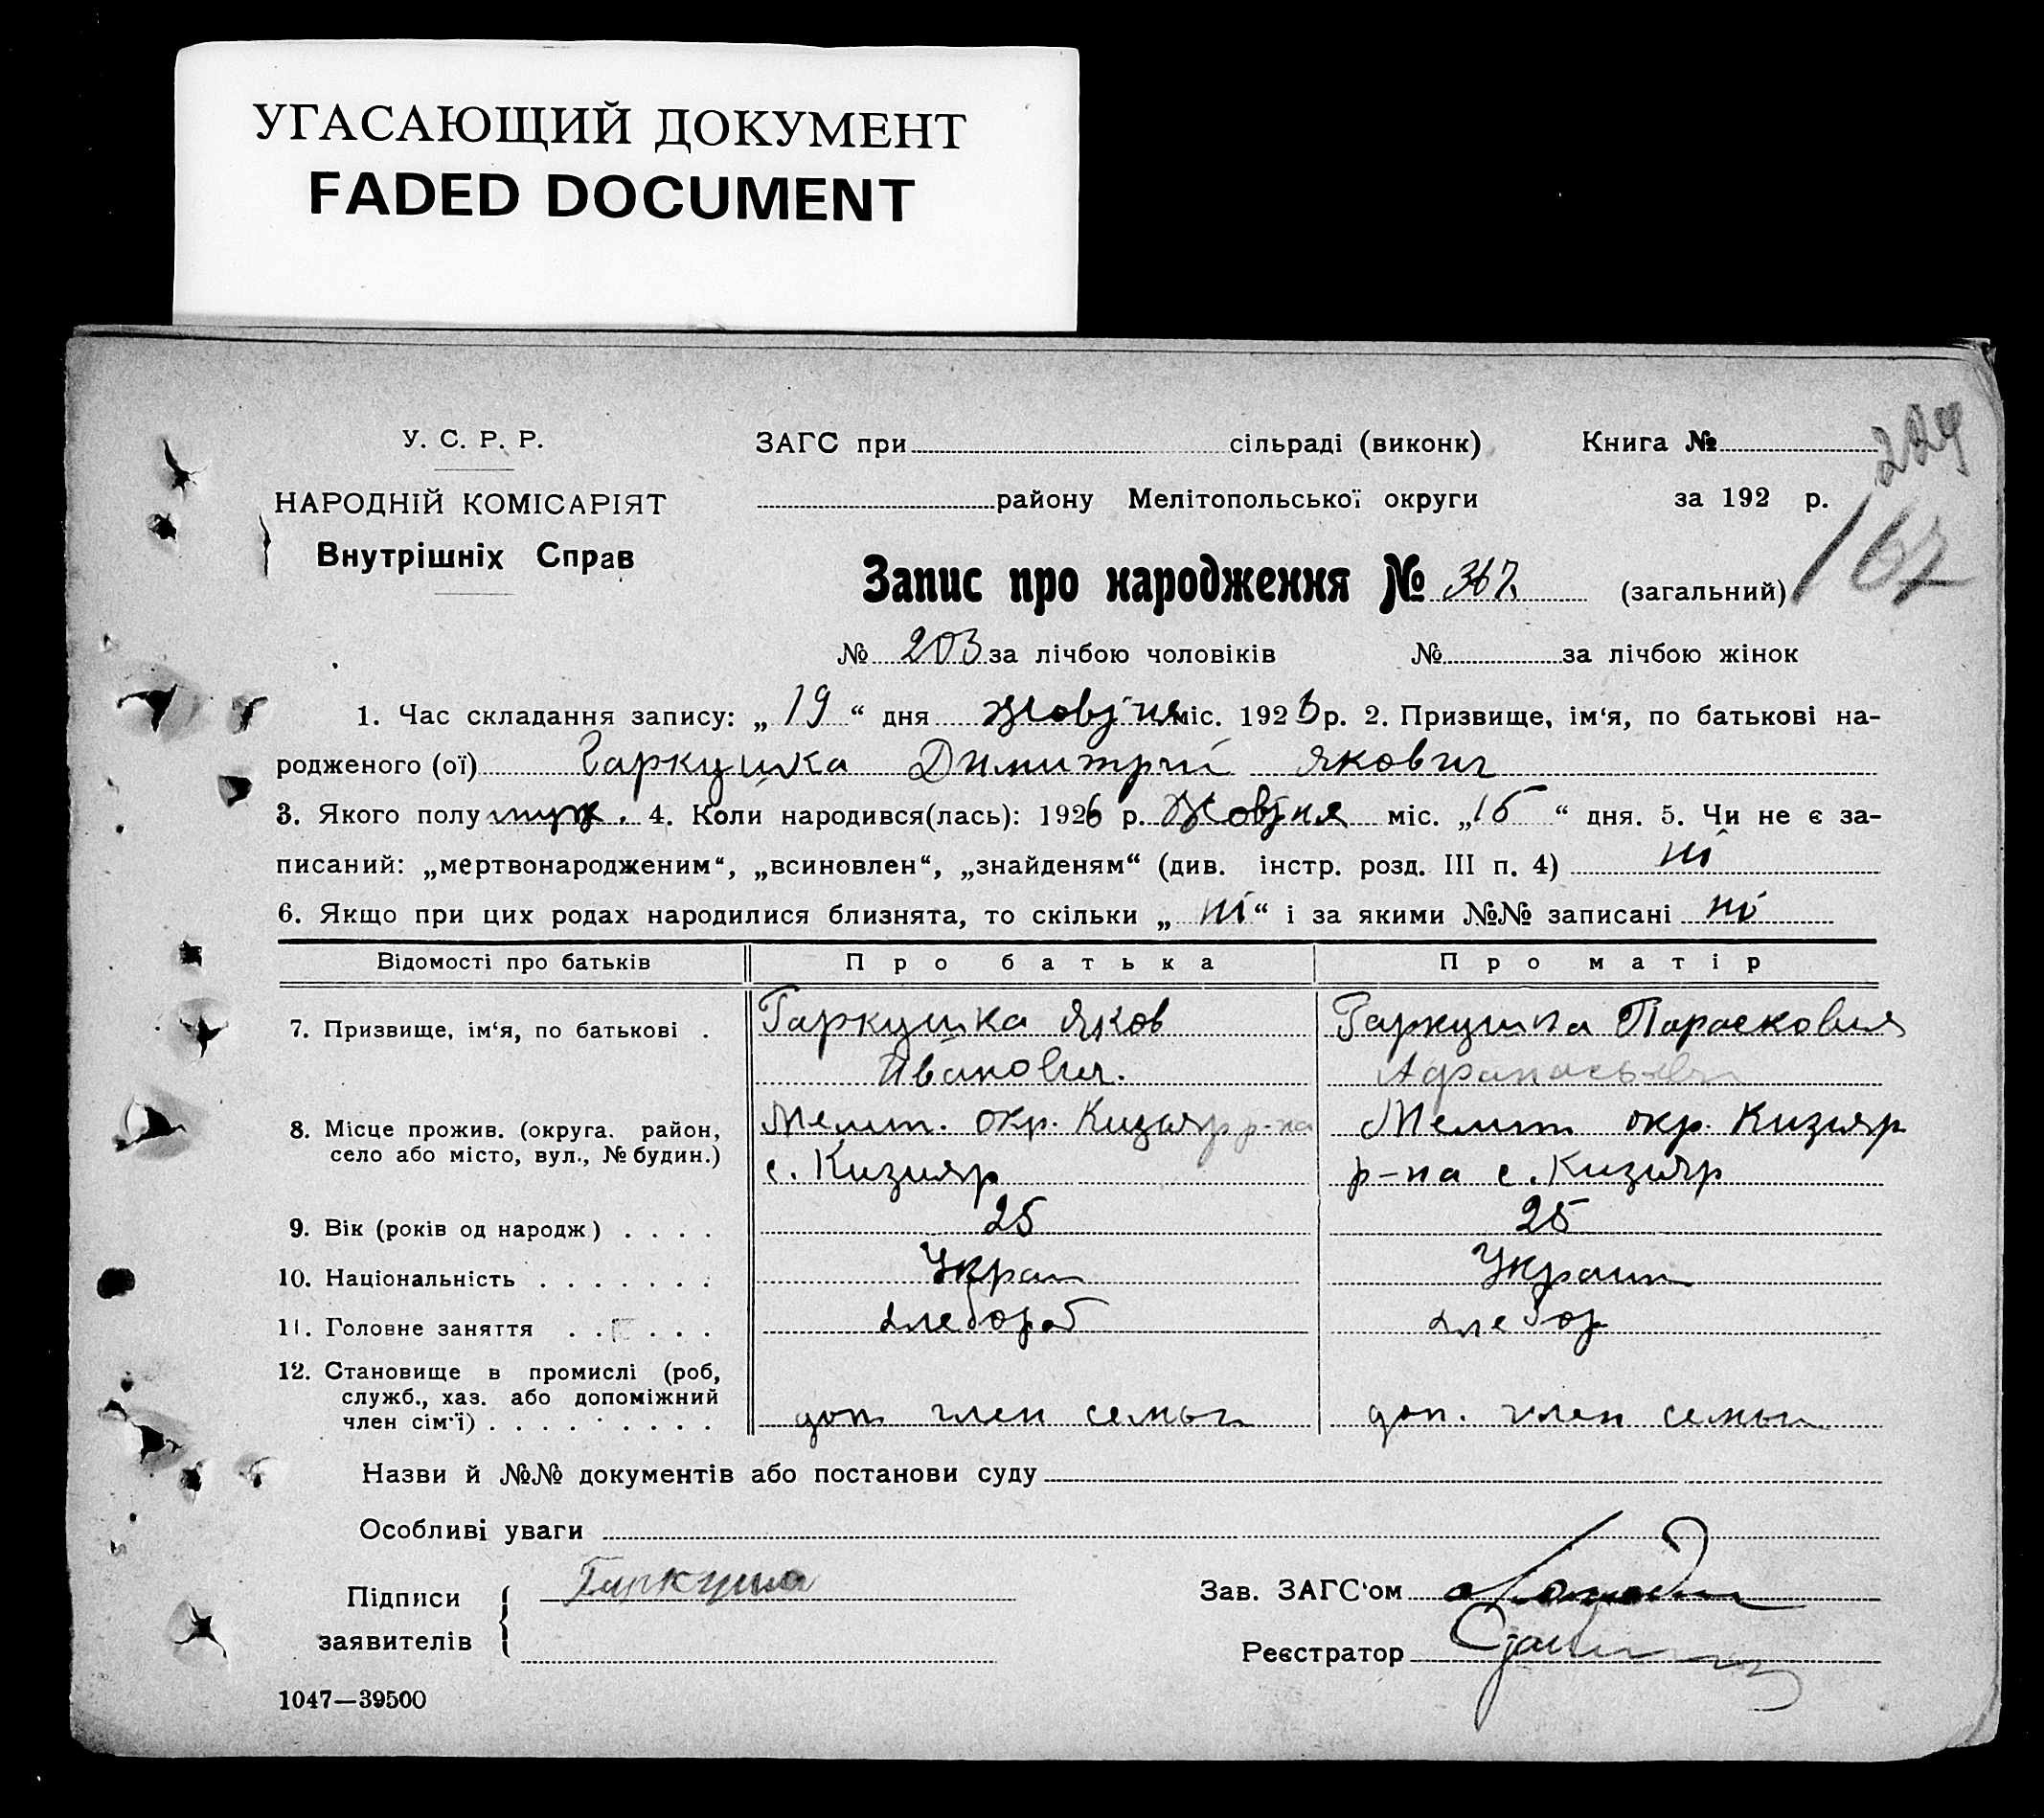 УГАСАЮЩИЙ ДОКУМЕНТ
FADED DOCUMENT
229
У. С. Р. Р.
НАРОДНІЙ КОМІСАРІЯТ
Внутрішніх Справ
ЗАГС при сільраді (виконк) Книга №
району Мелітопольської округи за 192 р.
167
Запис про народження № 367 (загальний)
№ 203 за лічбою чоловіків № за лічбою жінок
1. Час складання запису: „ 19 “ дня Жовтня міс. 1926 р. 2. Призвище, ім‘я, по батькові на-
родженого (ої) Гаркушка Димитрий Якович
3. Якого полу муж. 4. Коли народився(лась): 1926 р. Жовтня міс. „15 “ дня. 5. Чи не є за-
писаний: „мертвонародженим“, „всиновлен“, „знайденям“ (див. інстр. розд. III п. 4) ні
6. Якщо при цих родах народилися близнята, то скільки „ ні “ і за якими №№ записані ні
Відомості про батьків Про батька Про матір
7. Призвище, ім‘я, по батькові . Гаркушка Яков Гаркушка Парасковия
Иванович. Афанасьевн
8. Місце прожив. (округа. район, Мелит. окр. Кизияр р-на Мелит окр. Кизияр
село або місто, вул., № будин.) с. Кизияр р-на с. Кизияр
9. Вік (років од народж) . . . . 25 25
10. Національність . . . . . . . Украи Украин
11. Головне заняття . . . . . . хлебороб хлебор
12. Становище в промислі (роб,
служб., хаз. або допоміжний
член сім‘ї) . . . . . . . . . доп член семьи доп. член семьи
Назви й №№ документів або постанови суду
Особливі уваги
Підписи Гаркуша Зав. ЗАГС‘ом
заявителів Реєстратор
1047—39500